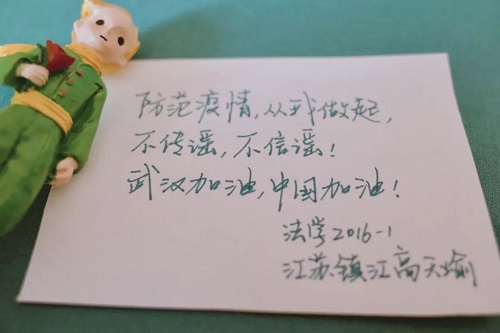 防范疫情,从我做起,
不传谣,不信谣!
武汉加油,中国加油!
法学2016-1
江苏镇江高天瑜